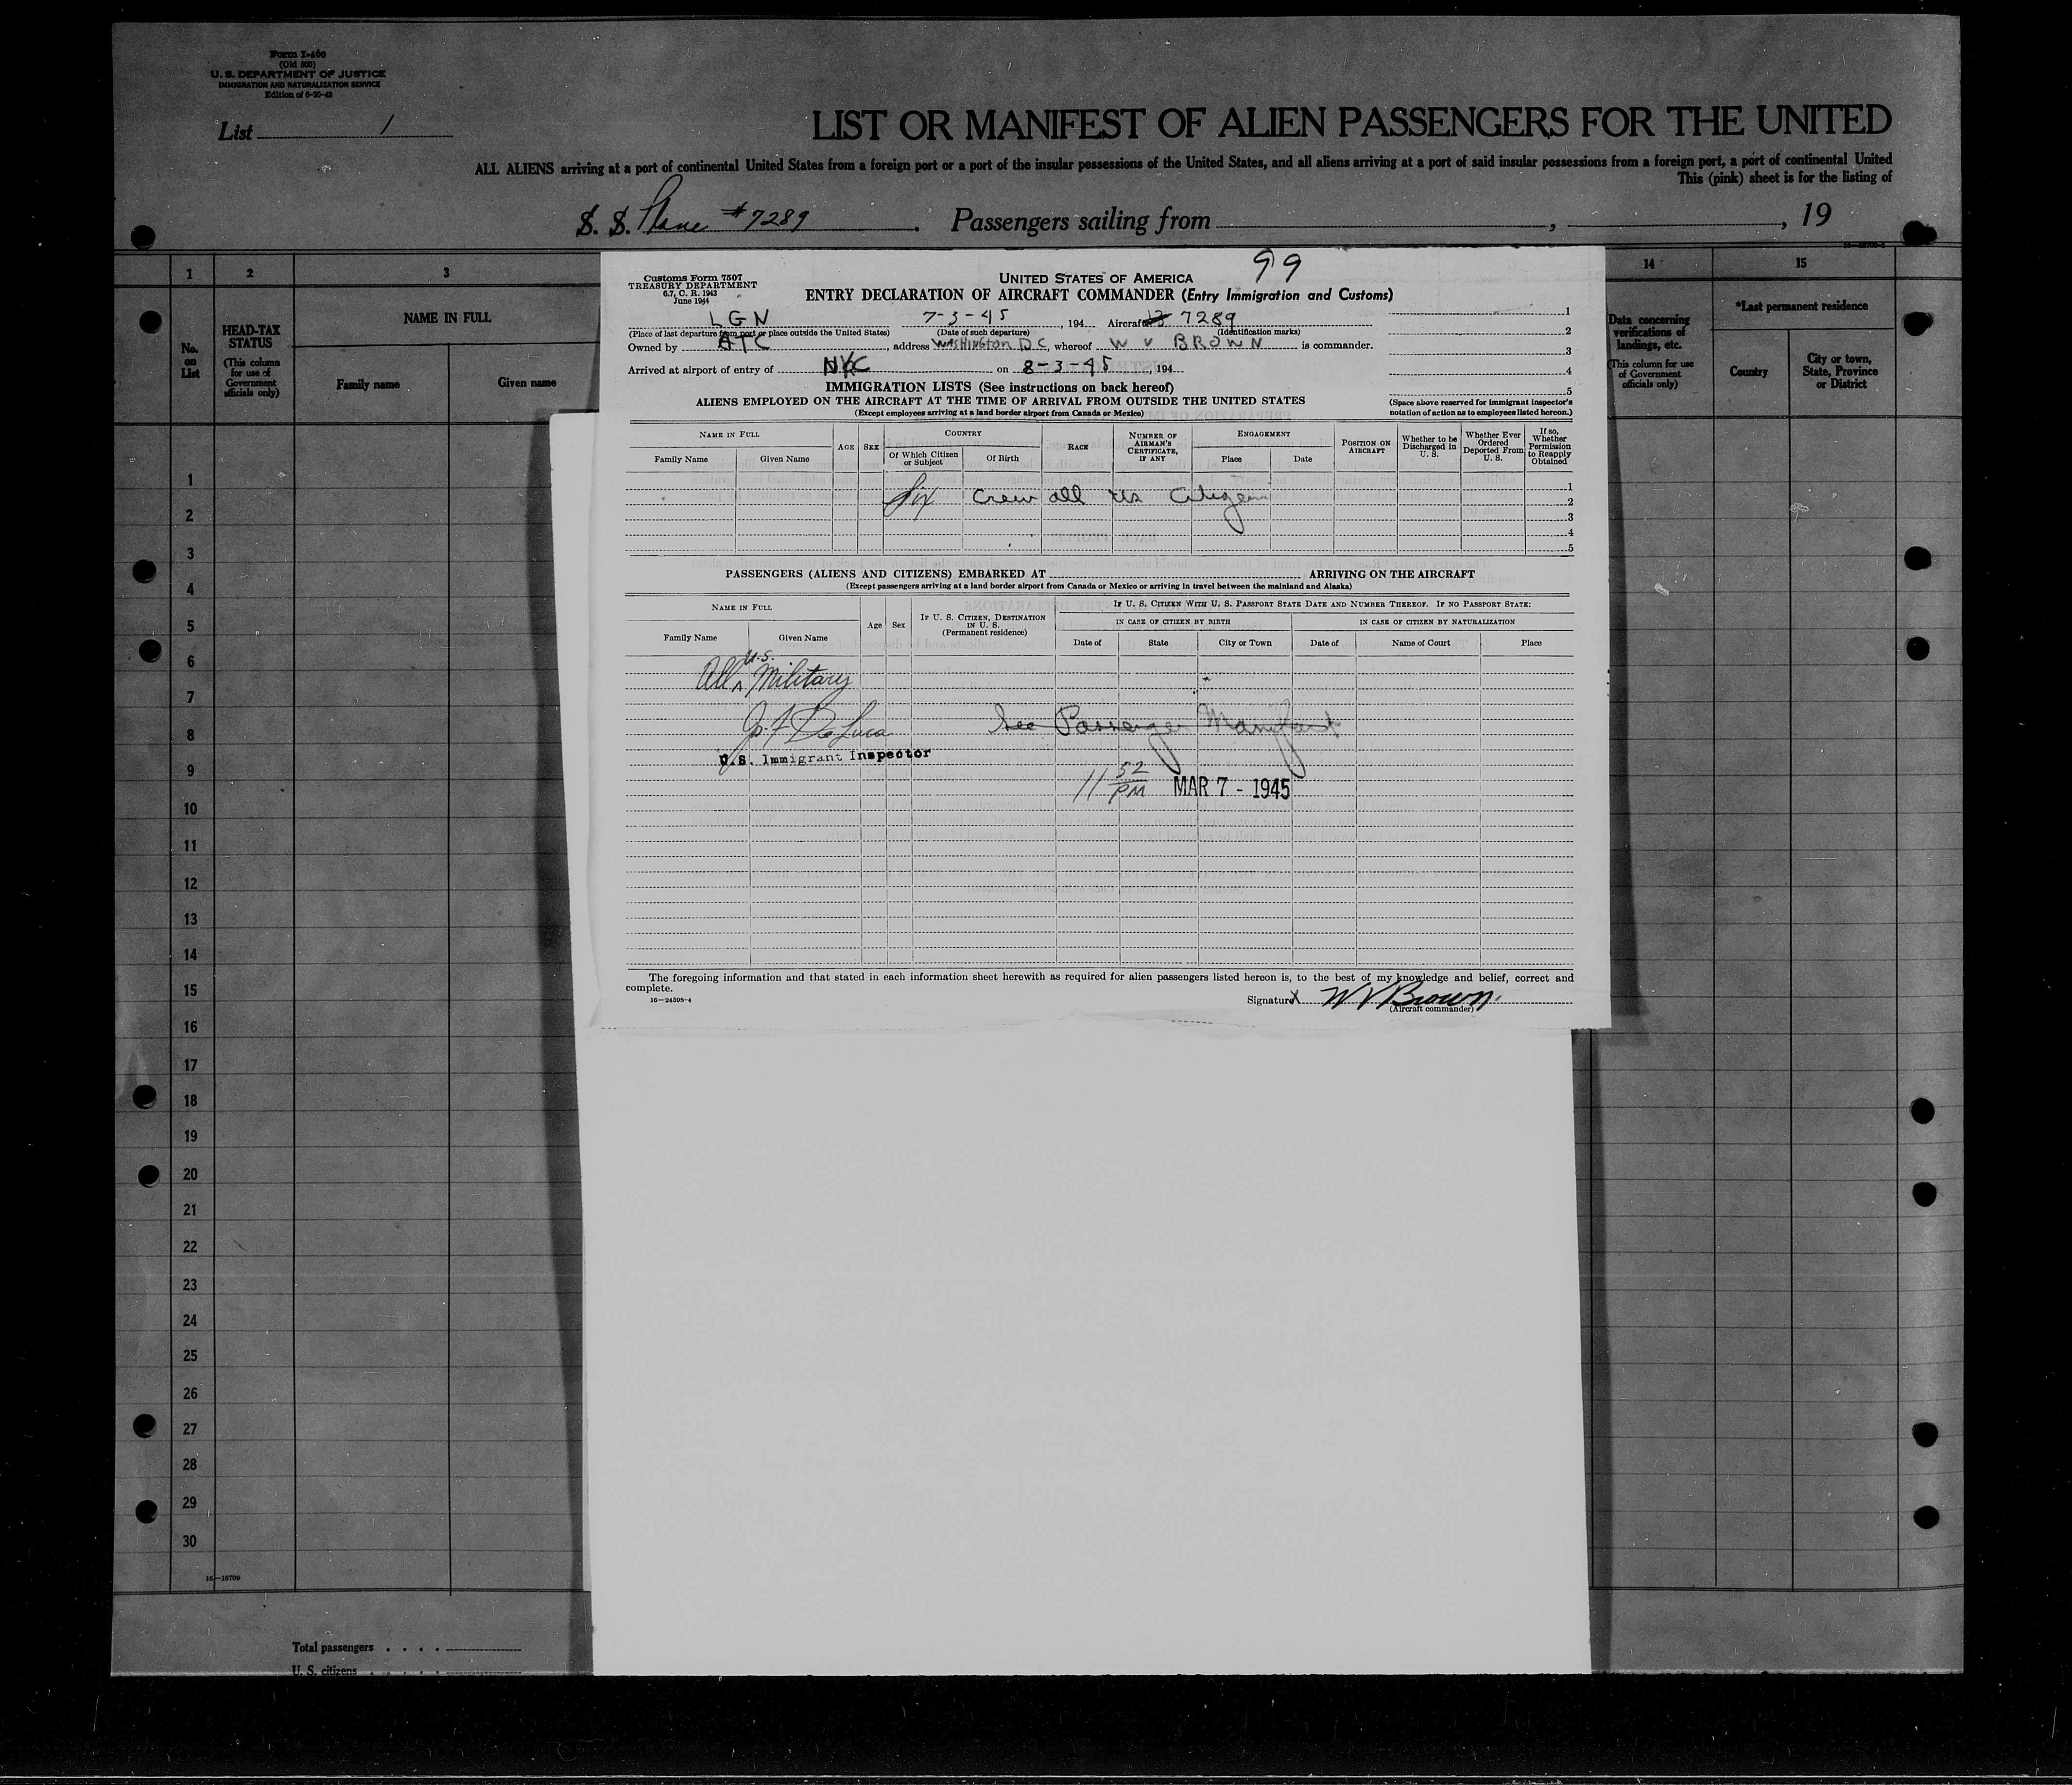 Form I-400
(Old 500)
U. S. DEPARTMENT OF JUSTICE
IMMIGRATION AND NATURALIZATION SERVICE
Edition of 6-20-43
List 1
LIST OR MANIFEST OF ALIEN PASSENGERS FOR THE UNITED
ALL ALIENS arriving at a port of continental United States from a foreign port or a port of the insular possessions of the United States, and all aliens arriving at a port of said insular possessions from a foreign port, a port of continental United
This (pink) sheet is for the listing of
S. S. Plane #7289 . Passengers sailing from , , 19
1 2 3 14 15
No. on List
HEAD-TAX STATUS
(This column for use of Government officials only)
NAME IN FULL
Family name Given name
Data concerning verifications of landings, etc.
(This column for use of Government officials only)
*Last permanent residence
Country
City or town, State, Province or District
99
Customs Form 7507
TREASURY DEPARTMENT
6.7, C. R. 1943
June 1944
UNITED STATES OF AMERICA
ENTRY DECLARATION OF AIRCRAFT COMMANDER (Entry Immigration and Customs)
LGN 7-3-45 , 194 Aircraft 7289
(Place of last departure from port or place outside the United States) (Date of such departure) (Identification marks)
Owned by ATC , address WASHINGTON DC, whereof W V BROWN is commander.
Arrived at airport of entry of NYC on 8-3-45 , 194
1
2
3
4
5
(Space above reserved for immigrant inspector's notation of action as to employees listed hereon.)
IMMIGRATION LISTS (See instructions on back hereof)
ALIENS EMPLOYED ON THE AIRCRAFT AT THE TIME OF ARRIVAL FROM OUTSIDE THE UNITED STATES
(Except employees arriving at a land border airport from Canada or Mexico)
NAME IN FULL
Family Name Given Name
AGE SEX
COUNTRY
Of Which Citizen or Subject Of Birth
RACE
NUMBER OF AIRMAN'S CERTIFICATE, IF ANY
ENGAGEMENT
Place Date
POSITION ON AIRCRAFT
Whether to be Discharged in U. S.
Whether Ever Ordered Deported From U. S.
If so, Whether Permission to Reapply Obtained
Six Crew all US Citizens
1
2
3
4
5
PASSENGERS (ALIENS AND CITIZENS) EMBARKED AT ARRIVING ON THE AIRCRAFT
(Except passengers arriving at a land border airport from Canada or Mexico or arriving in travel between the mainland and Alaska)
NAME IN FULL
Family Name Given Name
Age Sex
IF U. S. CITIZEN, DESTINATION IN U. S.
(Permanent residence)
IF U. S. CITIZEN WITH U. S. PASSPORT STATE DATE AND NUMBER THEREOF. IF NO PASSPORT STATE:
IN CASE OF CITIZEN BY BIRTH IN CASE OF CITIZEN BY NATURALIZATION
Date of State City or Town Date of Name of Court Place
All U.S. Military
Jo. F De Luca See Passenger Manifest
U.S. Immigrant Inspector
11 52 PM MAR 7 - 1945
The foregoing information and that stated in each information sheet herewith as required for alien passengers listed hereon is, to the best of my knowledge and belief, correct and
complete.
16—24598-4
Signature X W V Brown
(Aircraft commander)
1
2
3
4
5
6
7
8
9
10
11
12
13
14
15
16
17
18
19
20
21
22
23
24
25
26
27
28
29
30
16—18709
Total passengers . . . .
U. S. citizens . . . .